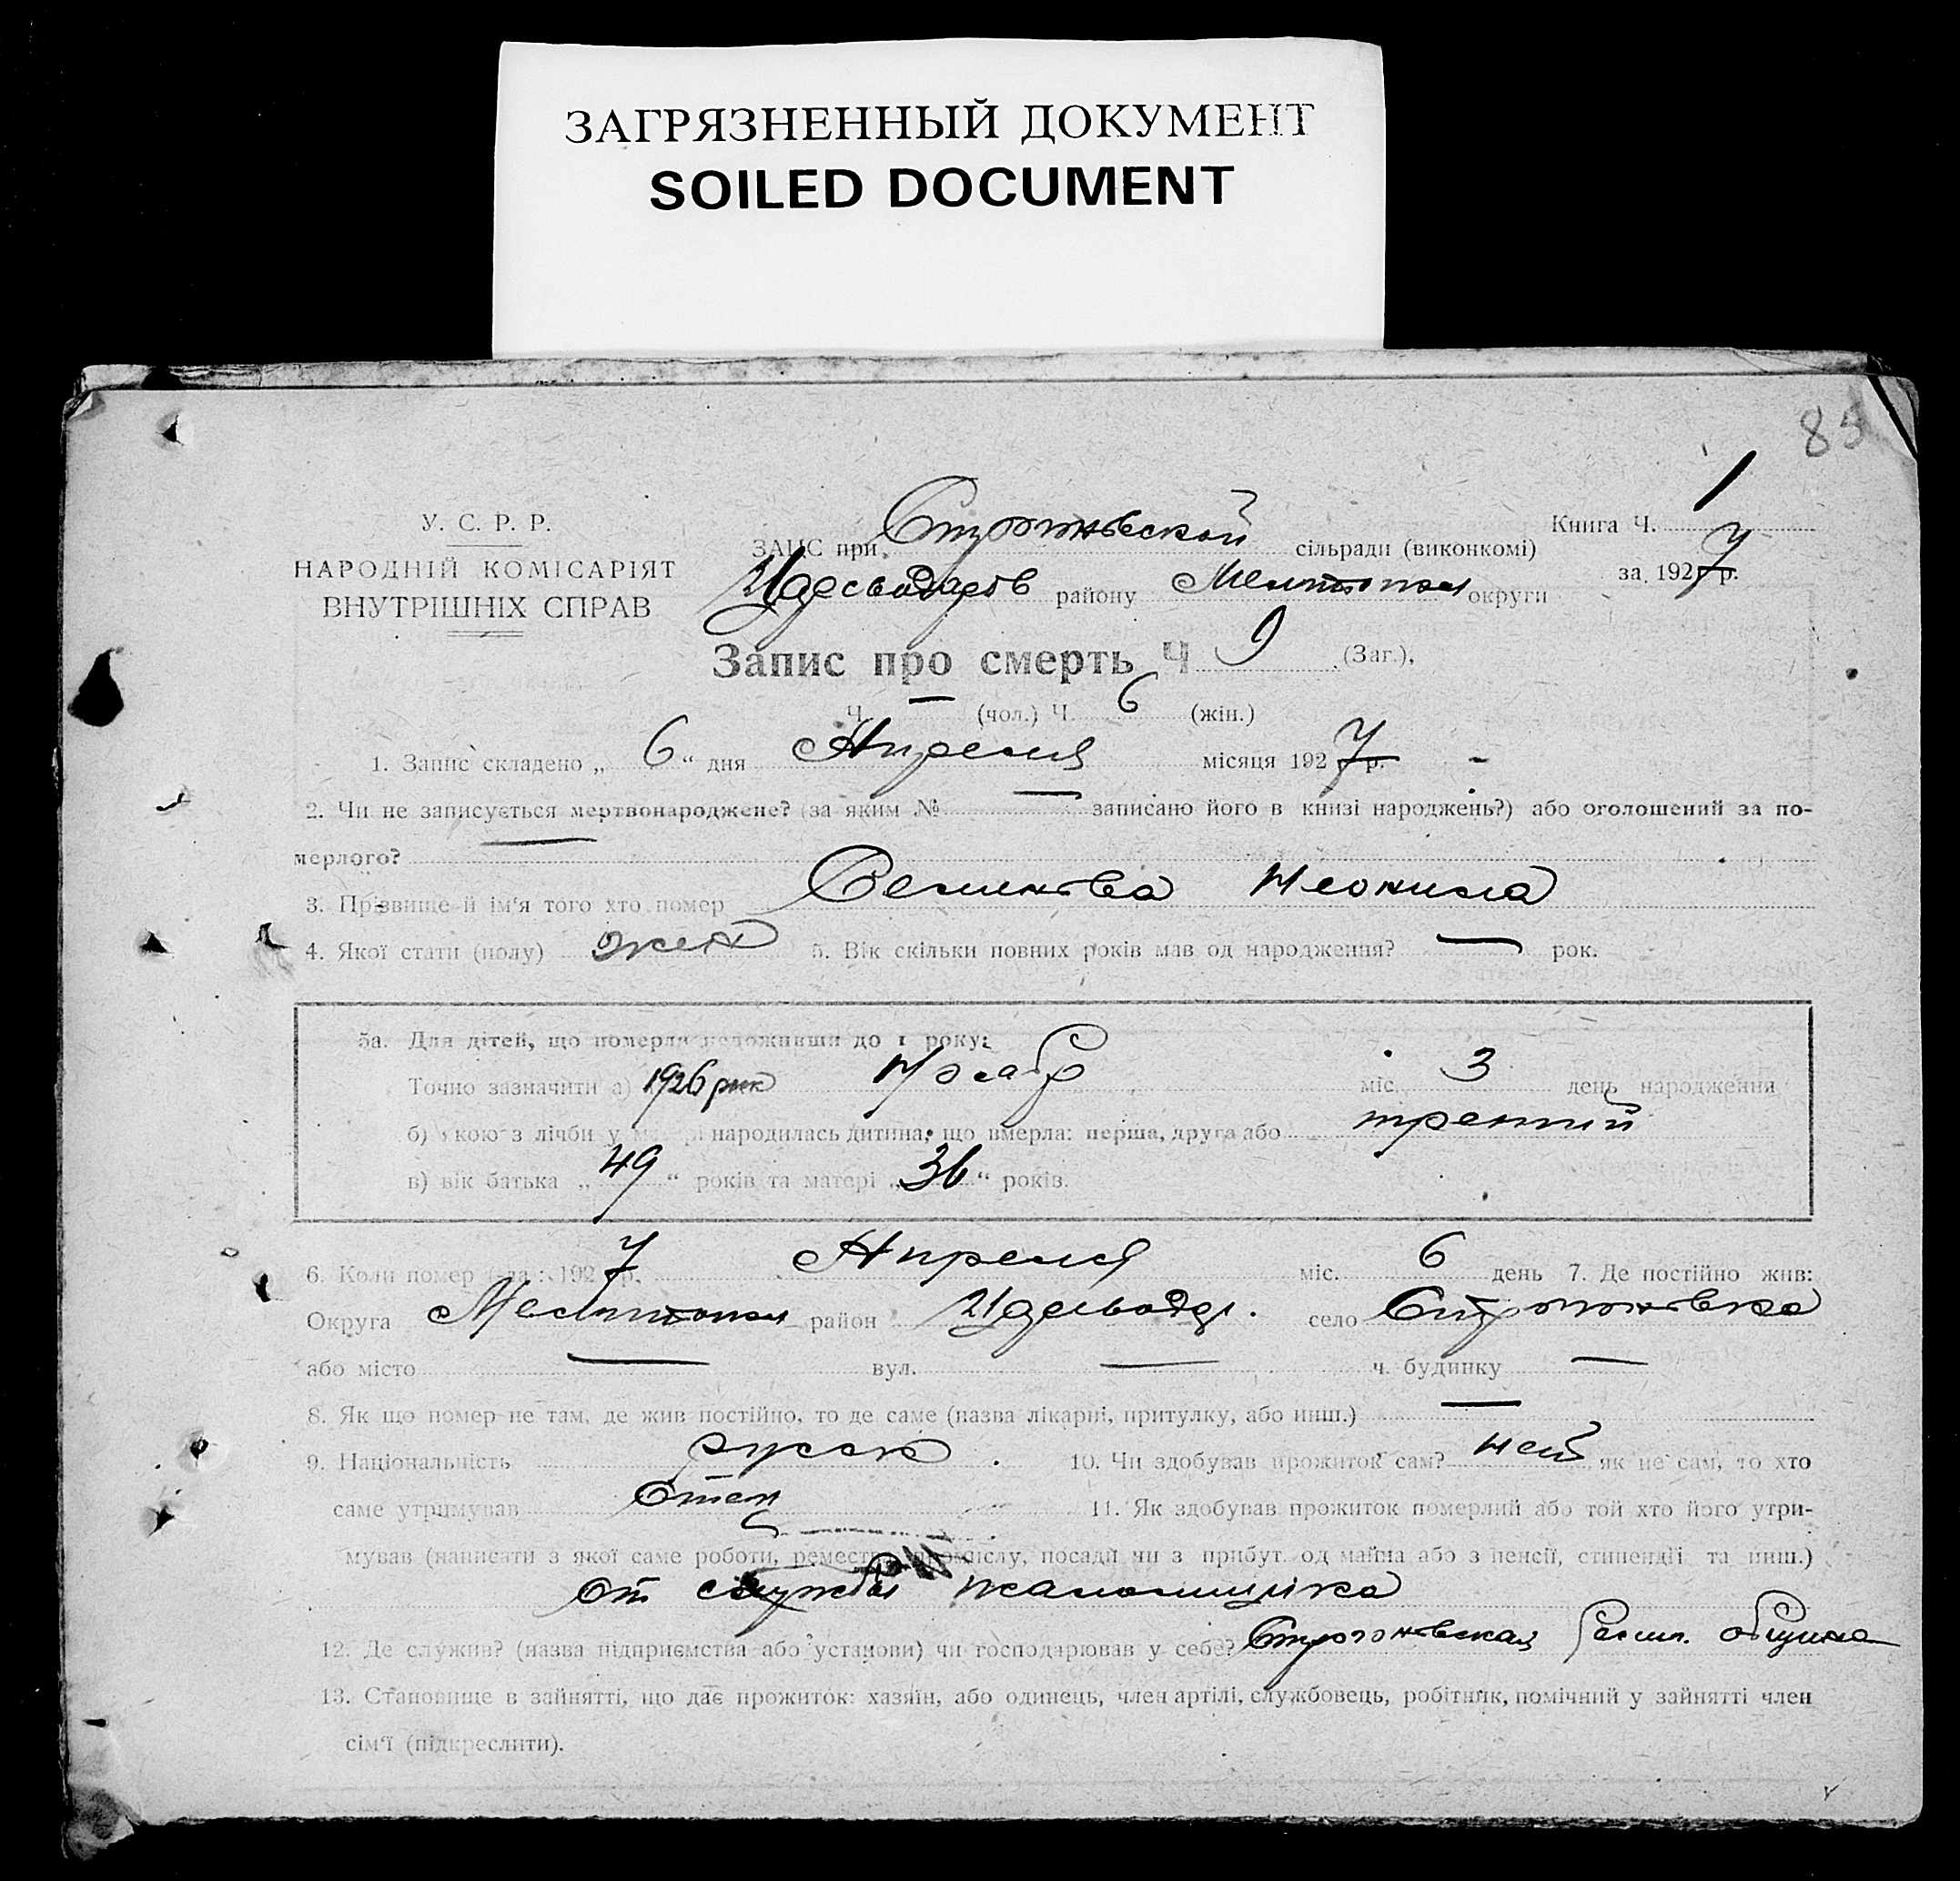 ЗАГРЯЗНЕННЫЙ ДОКУМЕНТ
SOILED DOCUMENT
85
У. С. Р. Р.
НАРОДНІЙ КОМІСАРІЯТ
ВНУТРІШНІХ СПРАВ
ЗАГС при сільради (виконкомі)
району округи
Книга Ч. 1
за 1927 р.
Запис про смерть Ч 9 (Заг.),
Ч. — (чол.) Ч. 6 (жін.)
1. Запис складено „ 6 “ дня Апреля місяця 1927 р.
2. Чи не записується мертвонароджене? (за яким № — записано його в книзі народжень?) або оголошений за по-
мерлого? —
3. Прізвище й ім'я того хто помер
4. Якої стати (полу) жен 5. Вік скільки повних років мав од народження? — рок.
5а. Для дітей, що померли недоживши до 1 року:
Точно зазначити а) 1926 рік міс. 3 день народження
б) якою з лічби у матері народилась дитина, що вмерла: перша, друга або третий
в) вік батька „ 49 “ років та матері „ 36 “ років.
6. Коли помер (ла): 1927 р. Апреля міс. 6 день 7. Де постійно жив:
Округа район село
або місто — вул. — ч. будинку —
8. Як що помер не там, де жив постійно, то де саме (назва лікарні, притулку, або инш.) —
9. Національність русск 10. Чи здобував прожиток сам? нет як не сам, то хто
саме утримував Отец 11. Як здобував прожиток померлий або той хто його утри-
мував (написати з якої саме роботи, ремества, промислу, посади чи з прибут. од майна або з пенсії, стипендії та инш.)
от службы
12. Де служив? (назва підприємства або установи) чи господарював у себе? община
13. Становище в зайнятті, що дає прожиток: хазяїн, або одинець, член артілі, службовець, робітник, помічний у зайнятті член
сім'ї (підкреслити).